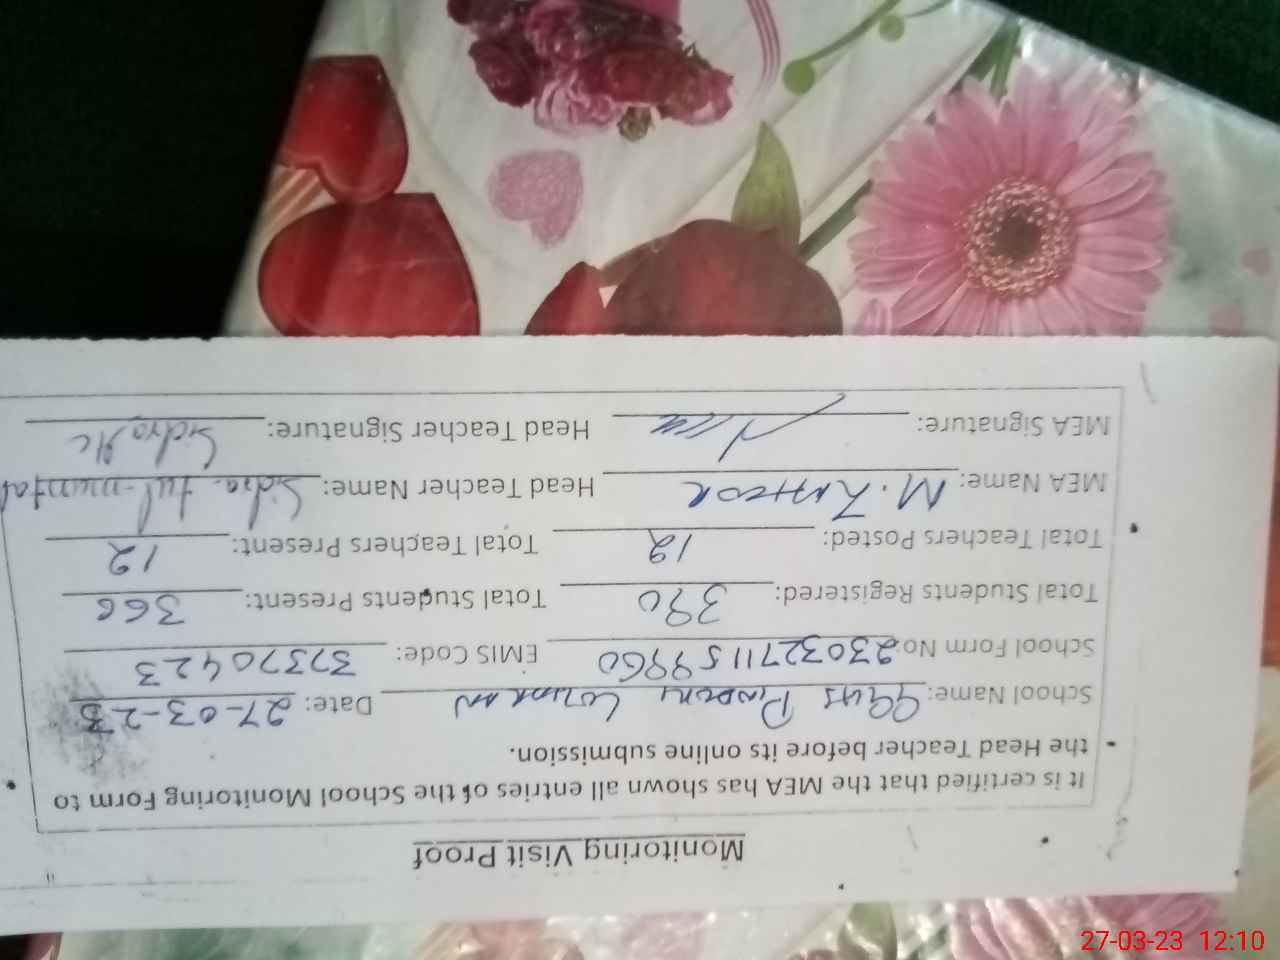 Monitoring Visit Proof
It is certified that the MEA has shown all entries of the School Monitoring Form to
the Head Teacher before its online submission.
School Name: Date: 27-03-23
School Form No: 23032711159960 EMIS Code: 37370423
Total Students Registered: 390 Total Students Present: 366
Total Teachers Posted: 12 Total Teachers Present: 12
MEA Name: M. Head Teacher Name: Sidra-tul-muntah
MEA Signature: Head Teacher Signature: Sidra
27-03-23 12:10